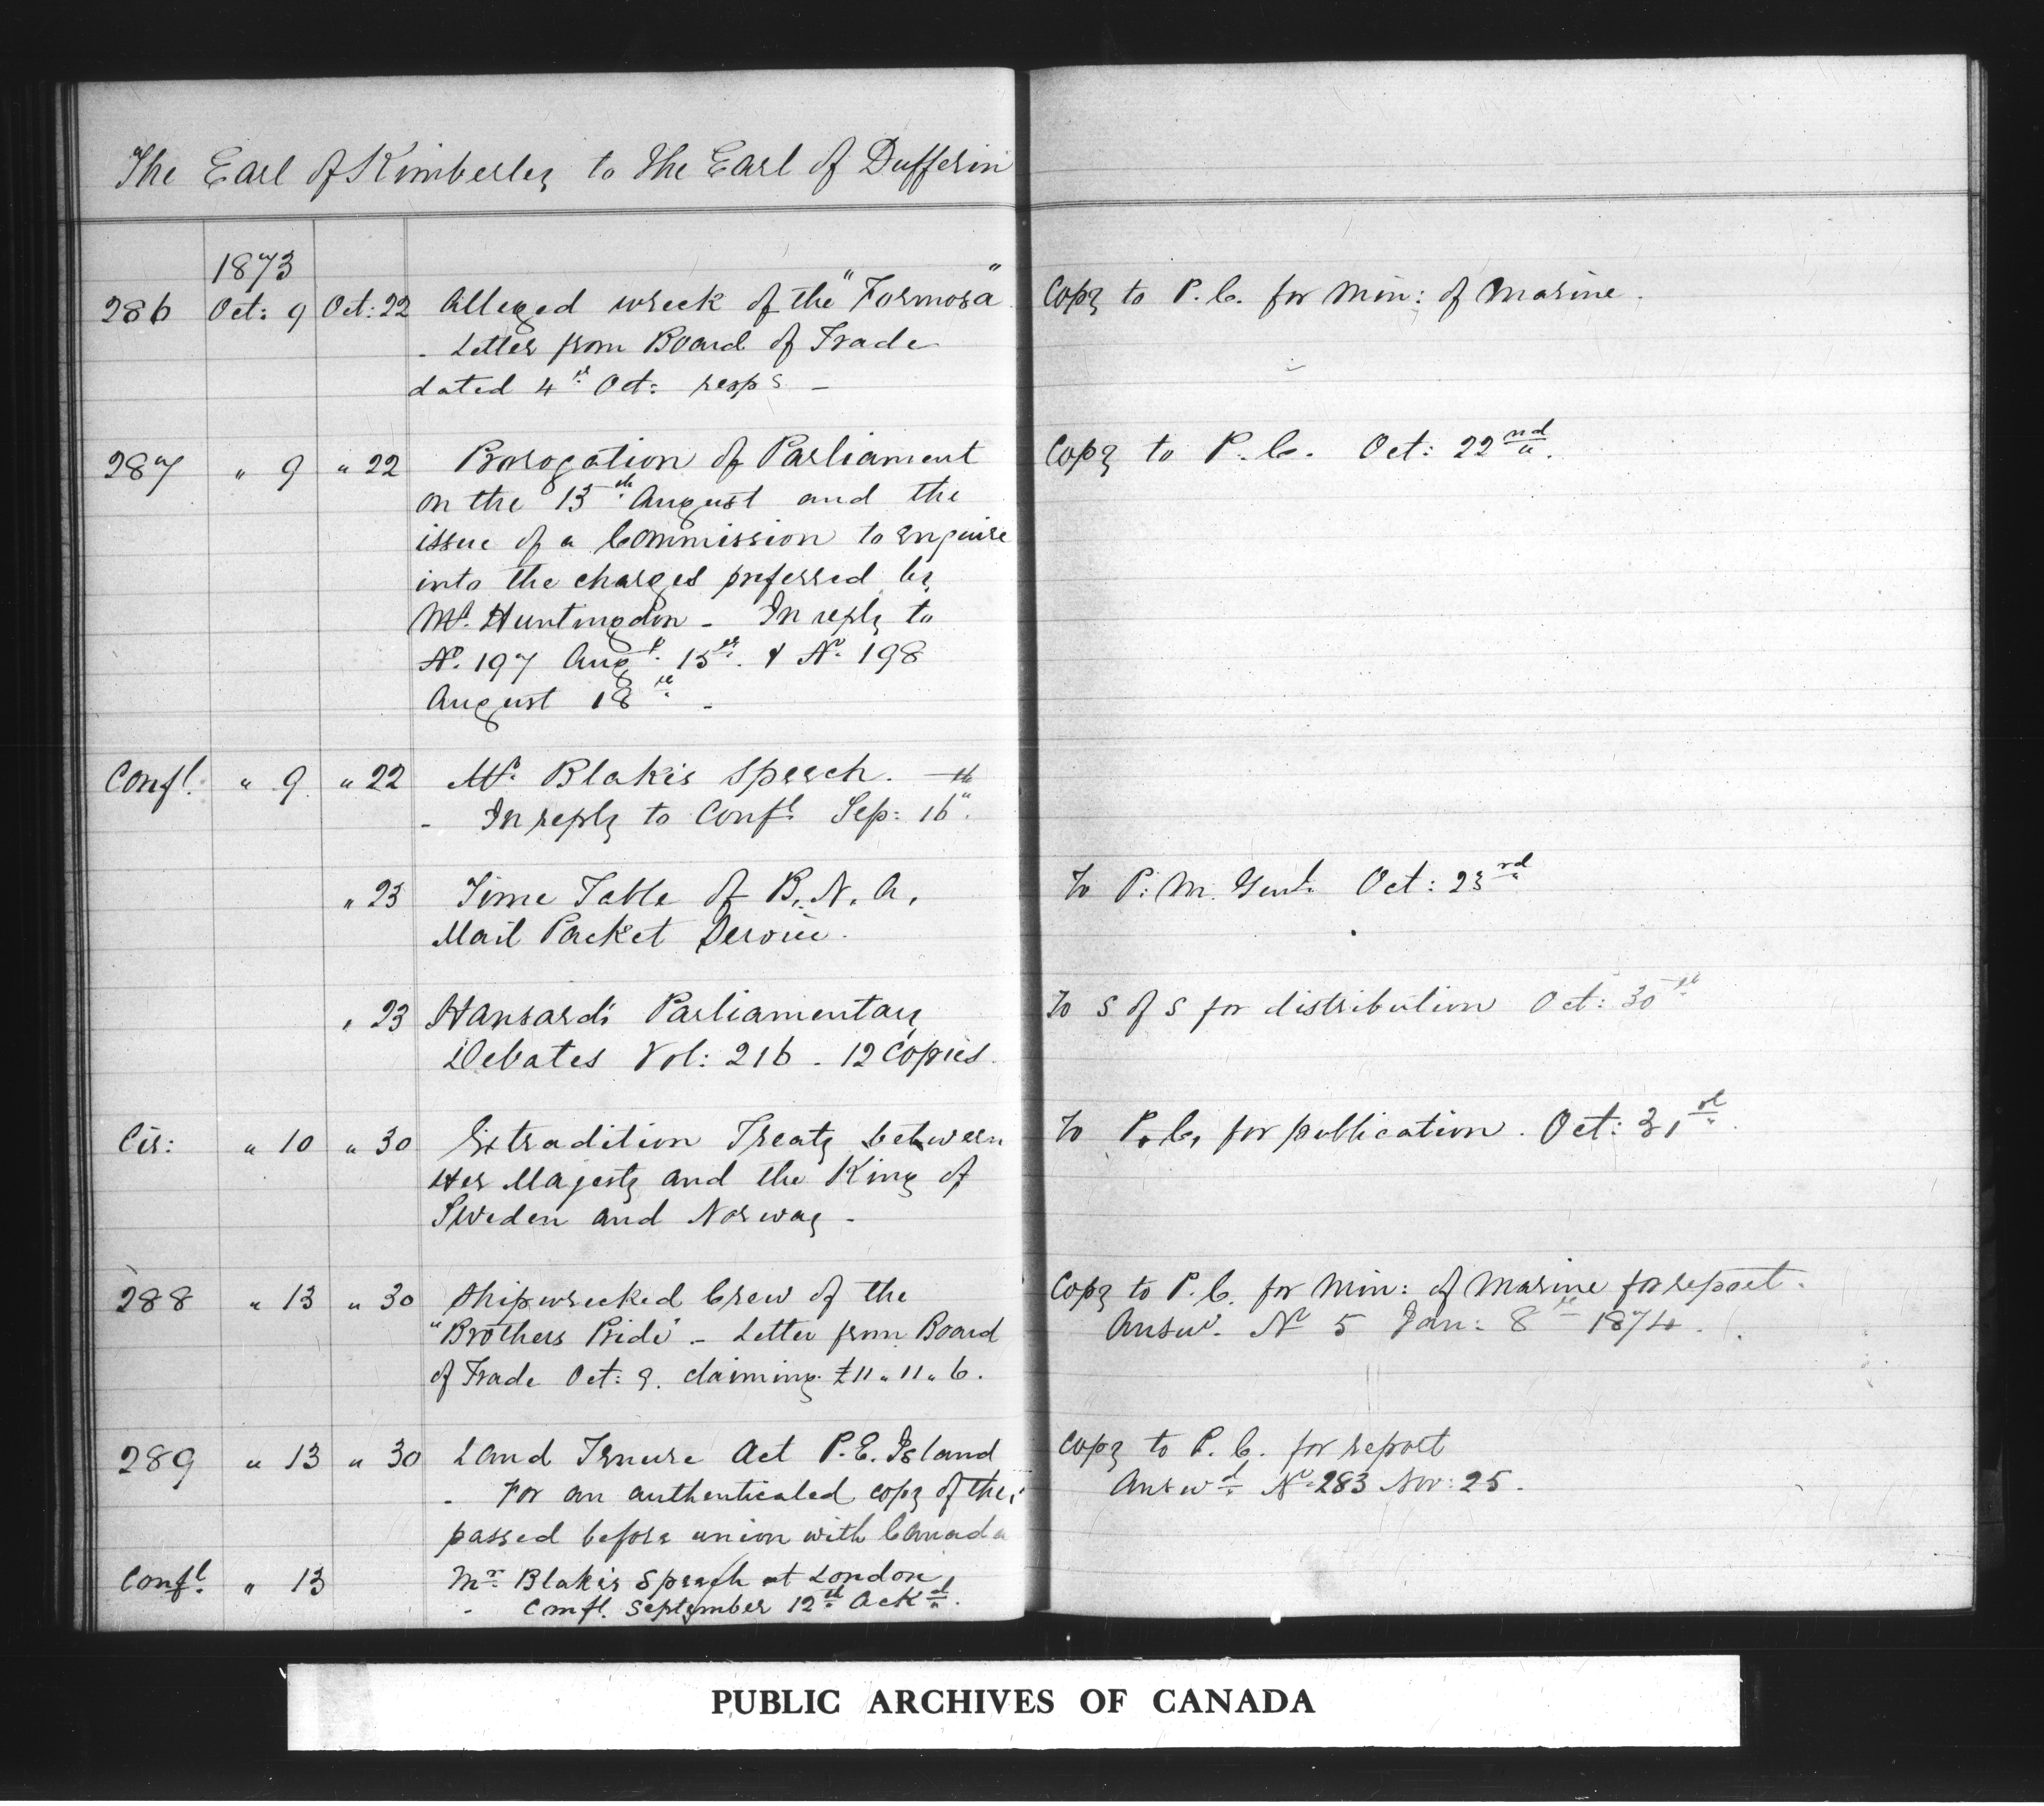 The Earl of Kimberley to the Earl of Dufferin
1873
286 Oct: 9 Oct: 22 Alleged wreck of the "Formosa" Copy to P.C. for Min: of Marine.
- Letter from Board of Trade
dated 4th Oct: resp g -
287 " 9 " 22 Prorogation of Parliament Copy to P.C. Oct: 22nd.
on the 13th August and the
issue of a Commission to enquire
into the charges preferred by
Mr. Huntingdon - In reply to
No. 197 Augt. 15th. & No. 198
August 18th -
Confl. " 9 " 22 Mr. Blake's Speech.
- In reply to Confl. Sep: 16th.
" 23 Time Table of B.N.A. To P.M. Genl. Oct: 23rd
Mail Packet Service.
" 23 Hansard's Parliamentary To S of S for distribution Oct: 30th
Debates Vol: 216 - 12 Copies.
Cir: " 10 " 30 Extradition Treaty between To P.C. for publication. Oct: 31st.
Her Majesty and the King of
Sweden and Norway -
288 " 13 " 30 Shipwrecked Crew of the Copy to P.C. for Min: of Marine for report.
"Brothers Pride" - Letter from Board Answd. No 5 Jan: 8th 1874.
of Trade Oct: 9. claiming £11 " 11 " 6.
289 " 13 " 30 Land Tenure Act P.E. Island Copy to P.C. for report
- For an authenticated copy of the Answd. No. 283 Nov: 25.
passed before union with Canada
Confl. " 13 Mr. Blake's Speech at London,
- Confl. September 12th Ackd.
PUBLIC ARCHIVES OF CANADA